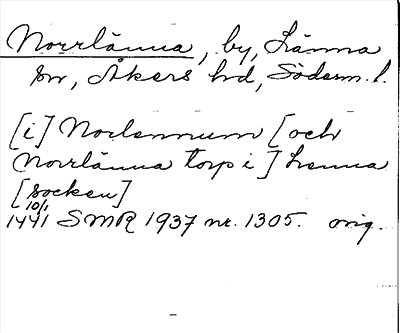 Norrlänna, by, Länna
sn, Åkers hd, Söderm. l.
[i] Norlennum [och
Norrlänna torp i] Lenna
[socken]
10/1
1441 SMR 1937 nr. 1305. orig.